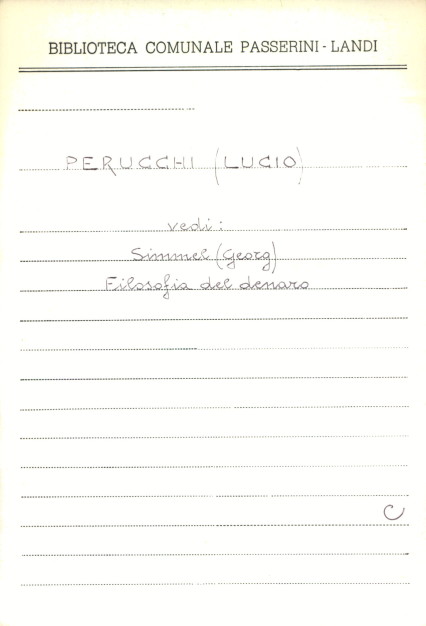 BIBLIOTECA COMUNALE PASSERINI - LANDI
PERUCCHI (LUCIO)
vedi:
Simmel (Georg)
Filosofia del denaro
C